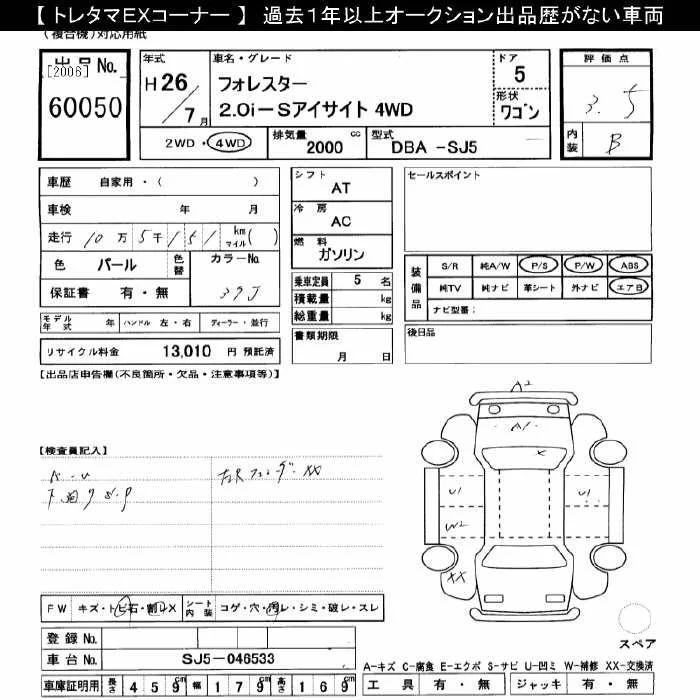 【トレタマEXコーナー】 過去1年以上オークション出品歴がない車両
(複合機)対応用紙
出品No.
[2006]
60050
年式
H 26/7月
車名・グレード
フォレスター
2.0i-Sアイサイト 4WD
ドア
5
形状
ワゴン
2WD・4WD
排気量 2000 cc
型式 DBA -SJ5
評価点
3.5
内装 B
車歴 自家用・( )
車検 年 月
走行 10万5千151 km マイル( )
色 パール 色替
カラーNo. 37J
保証書 有・無
モデル年式 年 ハンドル 左・右 ディーラー・並行
リサイクル料金 13,010 円 預託済
シフト AT
冷房 AC
燃料 ガソリン
乗車定員 5 名
積載量 kg
総重量 kg
書類期限
月 日
セールスポイント
装備品
S/R 純A/W P/S P/W ABS
純TV 純ナビ 革シート 外ナビ エアB
ナビ型番:
後日品
【出品店申告欄(不良箇所・欠品・注意事項等)】
【検査員記入】
A・U
下廻りS・P
XX
A2
A1
X
U1
U1
W2
XX
FW キズ・トビ石・割レX
シート内装 コゲ・穴・汚レ・シミ・破レ・スレ
登録No.
車台No. SJ5-046533
車庫証明用 長さ 459cm 幅 179cm 高さ 169cm
スペア
A-キズ C-腐食 E-エクボ S-サビ U-凹ミ W-補修 XX-交換済
工具 有・無 ジャッキ 有・無